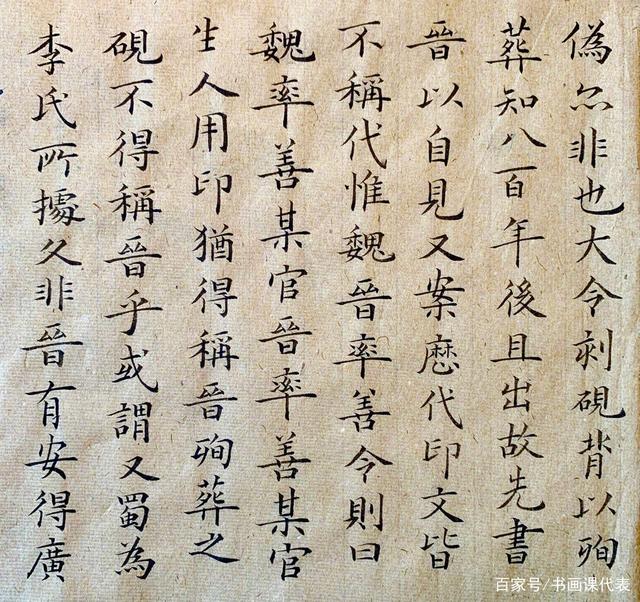 偽亦非也大令刻硯背以殉
葬知八百年後且出故先書
晉以自見又案歷代印文皆
不稱代惟魏晉率善令則曰
魏率善某官晉率善某官
生人用印猶得稱晉殉葬之
硯不得稱晉乎或謂又蜀為
李氏所據久非晉有安得廣
百家号/书画课代表